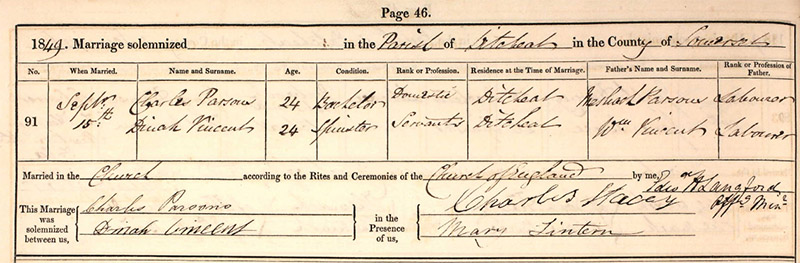 Page 46.
1849. Marriage solemnized in the Parish of Ditcheat in the County of Somerset
No. When Married. Name and Surname. Age. Condition. Rank or Profession. Residence at the Time of Marriage. Father's Name and Surname. Rank or Profession of Father.
91 Septbr 15th Charles Parsons 24 Bachelor Domestic Ditcheat Meshach Parsons Labourer
Dinah Vincent 24 Spinster Servants Ditcheat Wm Vincent Labourer
Married in the Church according to the Rites and Ceremonies of the Church of England by me, Langford Offg Minr
This Marriage was solemnized between us, Charles Parsons Dinah Vincent in the Presence of us, Charles Stacey Mary Tintern